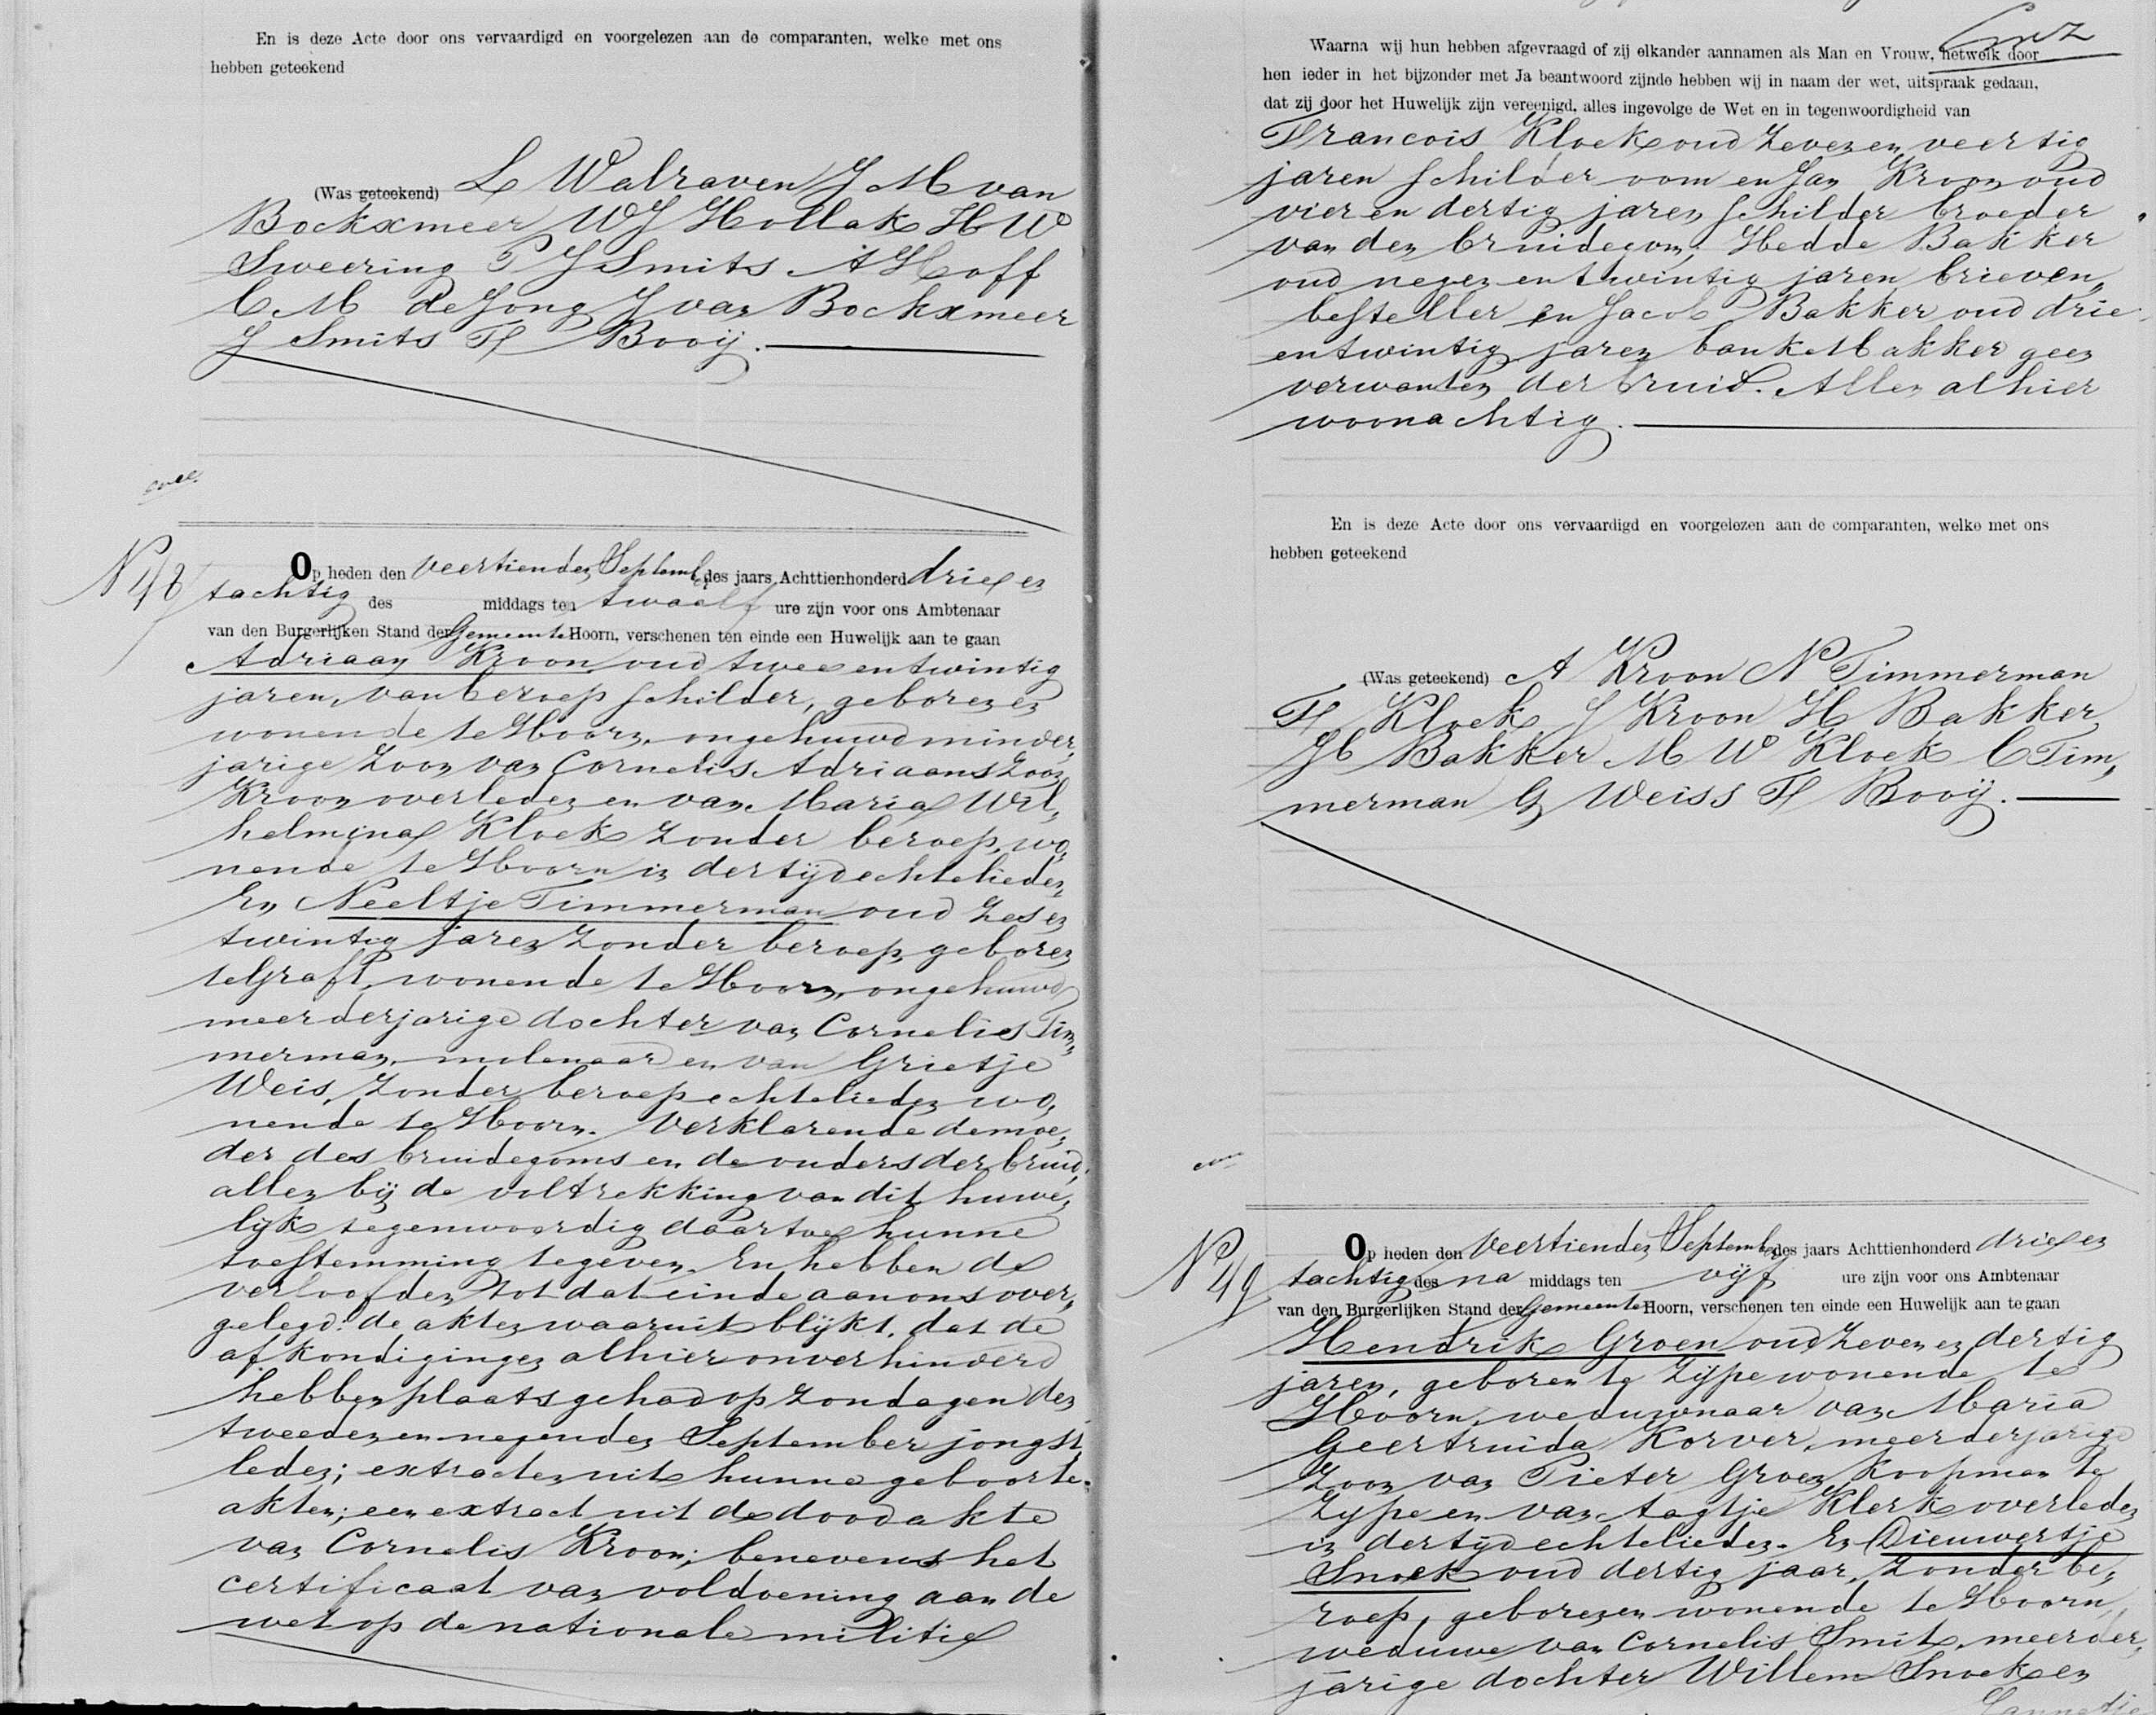 En is deze Acte door ons vervaardigd en voorgelezen aan de comparanten, welke met ons
hebben geteekend
(Was geteekend) L Walraven J M van
Bockxmeer W J Hollak H W
Sweering P J Smits A Hoff
C M de Jong J van Bockxmeer
J Smits F Booij.
N 48
Op heden den veertienden Septemb des jaars Achttienhonderd drie en
tachtig des middags ten twaalf ure zijn voor ons Ambtenaar
van den Burgerlijken Stand der Gemeente Hoorn, verschenen ten einde een Huwelijk aan te gaan
Adriaan Kroon oud twee en twintig
jaren, van beroep schilder, geboren en
wonende te Hoorn, ongehuwd minder,
jarige zoon van Cornelis Adriaanszoon
Kroon overleden en van Maria Wil,
helmina Kloek zonder beroep, wo,
nende te Hoorn in dertijd echtelieden,
En Neeltje Timmerman oud zes en
twintig jaren zonder beroep, geboren
te Graft, wonende te Hoorn, ongehuwd
meerderjarige dochter van Cornelies Tim,
merman, molenaar en van Grietje
Weis, zonder beroep echtelieden wo,
nende te Hoorn. Verklarende de moe,
der des bruidegoms en de ouders der bruid,
allen bij de voltrekking van dit huwe,
lijk tegenwoordig daartoe hunne
toestemming te geven. En hebben de
verloofden tot dat einde aan ons over,
gelegd: de akten waaruit blijkt, dat de
afkondigingen alhier onverhinderd
hebben plaats gehad op zondagen den
tweeden en negenden September jongst,
leden; extracten uit hunne geboorte,
akten; een extract uit de doodakte
van Cornelis Kroon; benevens het
certificaat van voldoening aan de
wet op de nationale militie
Waarna wij hun hebben afgevraagd of zij elkander aannamen als Man en Vrouw, hetwelk door
hen ieder in het bijzonder met Ja beantwoord zijnde hebben wij in naam der wet, uitspraak gedaan,
dat zij door het Huwelijk zijn vereenigd, alles ingevolge de Wet en in tegenwoordigheid van
Francois Kloek oud zeven en veertig
jaren schilder oom en Jan Kroon oud
vier en dertig jaren schilder broeder
van den bruidegom; Hedde Bakker
oud negen en twintig jaren brieven,
besteller en Jacob Bakker oud drie
en twintig jaren bankbakker geen
verwanten der bruid. Allen alhier
woonachtig.
En is deze Acte door ons vervaardigd en voorgelezen aan de comparanten, welke met ons
hebben geteekend
(Was geteekend) A Kroon N Timmerman
F Kloek J Kroon H Bakker
Jb Bakker M W Kloek C Tim,
merman G Weiss F Booij.
No 49
Op heden den veertienden Septemb des jaars Achttienhonderd drie en
tachtig des na middags ten vijf ure zijn voor ons Ambtenaar
van den Burgerlijken Stand der Gemeente Hoorn, verschenen ten einde een Huwelijk aan te gaan
Hendrik Groen oud zeven en dertig
jaren, geboren te Zijpe wonende te
Hoorn, weduwnaar van Maria
Geertruida Korver, meerderjarige
zoon van Pieter Groen koopman te
Zype en van Aagtje Klerk overleden
in dertijd echtelieden. En Dieuwertje
Snoek oud dertig jaar, zonder be,
roep, geboren en wonende te Hoorn,
weduwe van Cornelis Smit, meerder,
jarige dochter Willem Snoek en